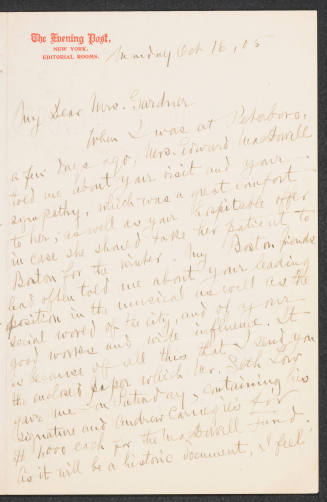 The Evening Post.
NEW YORK.
EDITORIAL ROOMS.
Monday Oct 16, 05
My Dear Mrs. Gardner
When I was at Peterboro,
a few days ago, Mrs. Edward MacDowell
told me about your visit and your
sympathy, which was a great comfort
to her, as well as your hospitable offer
in case she should take her patient to
Boston for the winter. My Boston friends
had often told me about your leading
position in the musical as well as the
social world of the city, and of your
good works and wide influence. It
is because of all this that I send you
the enclosed paper which Mr. Seth Low
gave me on Saturday, containing his
signature and Andrew Carnegie's for
$1,000 each for the MacDowell Fund.
As it will be a historic document, I feel